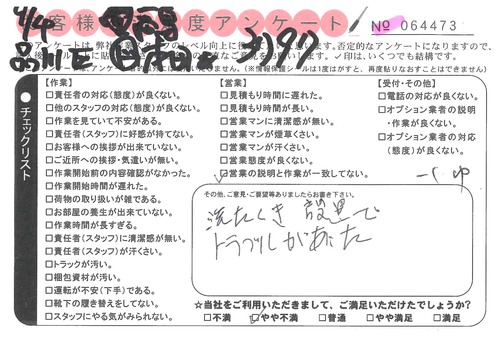 お客様満足度アンケート
№ 064473
4/14
品川区
チェックリスト
【作業】
□責任者の対応(態度)が良くない。
□他のスタッフの対応(態度)が良くない。
□作業を見ていて不安がある。
□責任者(スタッフ)に好感が持てない。
□お客様への挨拶が出来ていない。
□ご近所への挨拶・気遣いが無い。
□作業開始前の内容確認がなかった。
□作業開始時間が遅れた。
□荷物の取り扱いが雑である。
□お部屋の養生が出来ていない。
□作業時間が長すぎる。
□責任者(スタッフ)に清潔感が無い。
□責任者(スタッフ)が汗くさい。
□トラックが汚い。
□梱包資材が汚い。
□運転が不安(下手)である。
□靴下の履き替えをしてない。
□スタッフにやる気がみられない。
【営業】
□見積もり時間に遅れた。
□見積もり時間が長い。
□営業マンに清潔感が無い。
□営業マンが煙草くさい。
□営業マンが汗くさい。
□営業態度が良くない。
□営業の説明と作業が一致してない。
【受付・その他】
□電話の対応が良くない。
□オプション業者の説明
・作業が良くない。
□オプション業者の対応
(態度)が良くない。
その他、ご意見・ご要望等ありましたらお書き下さい。
洗たくき 設置で
トラブルがあった
☆当社をご利用いただきまして、ご満足いただけたでしょうか?
□不満 □やや不満 □普通 □やや満足 □満足